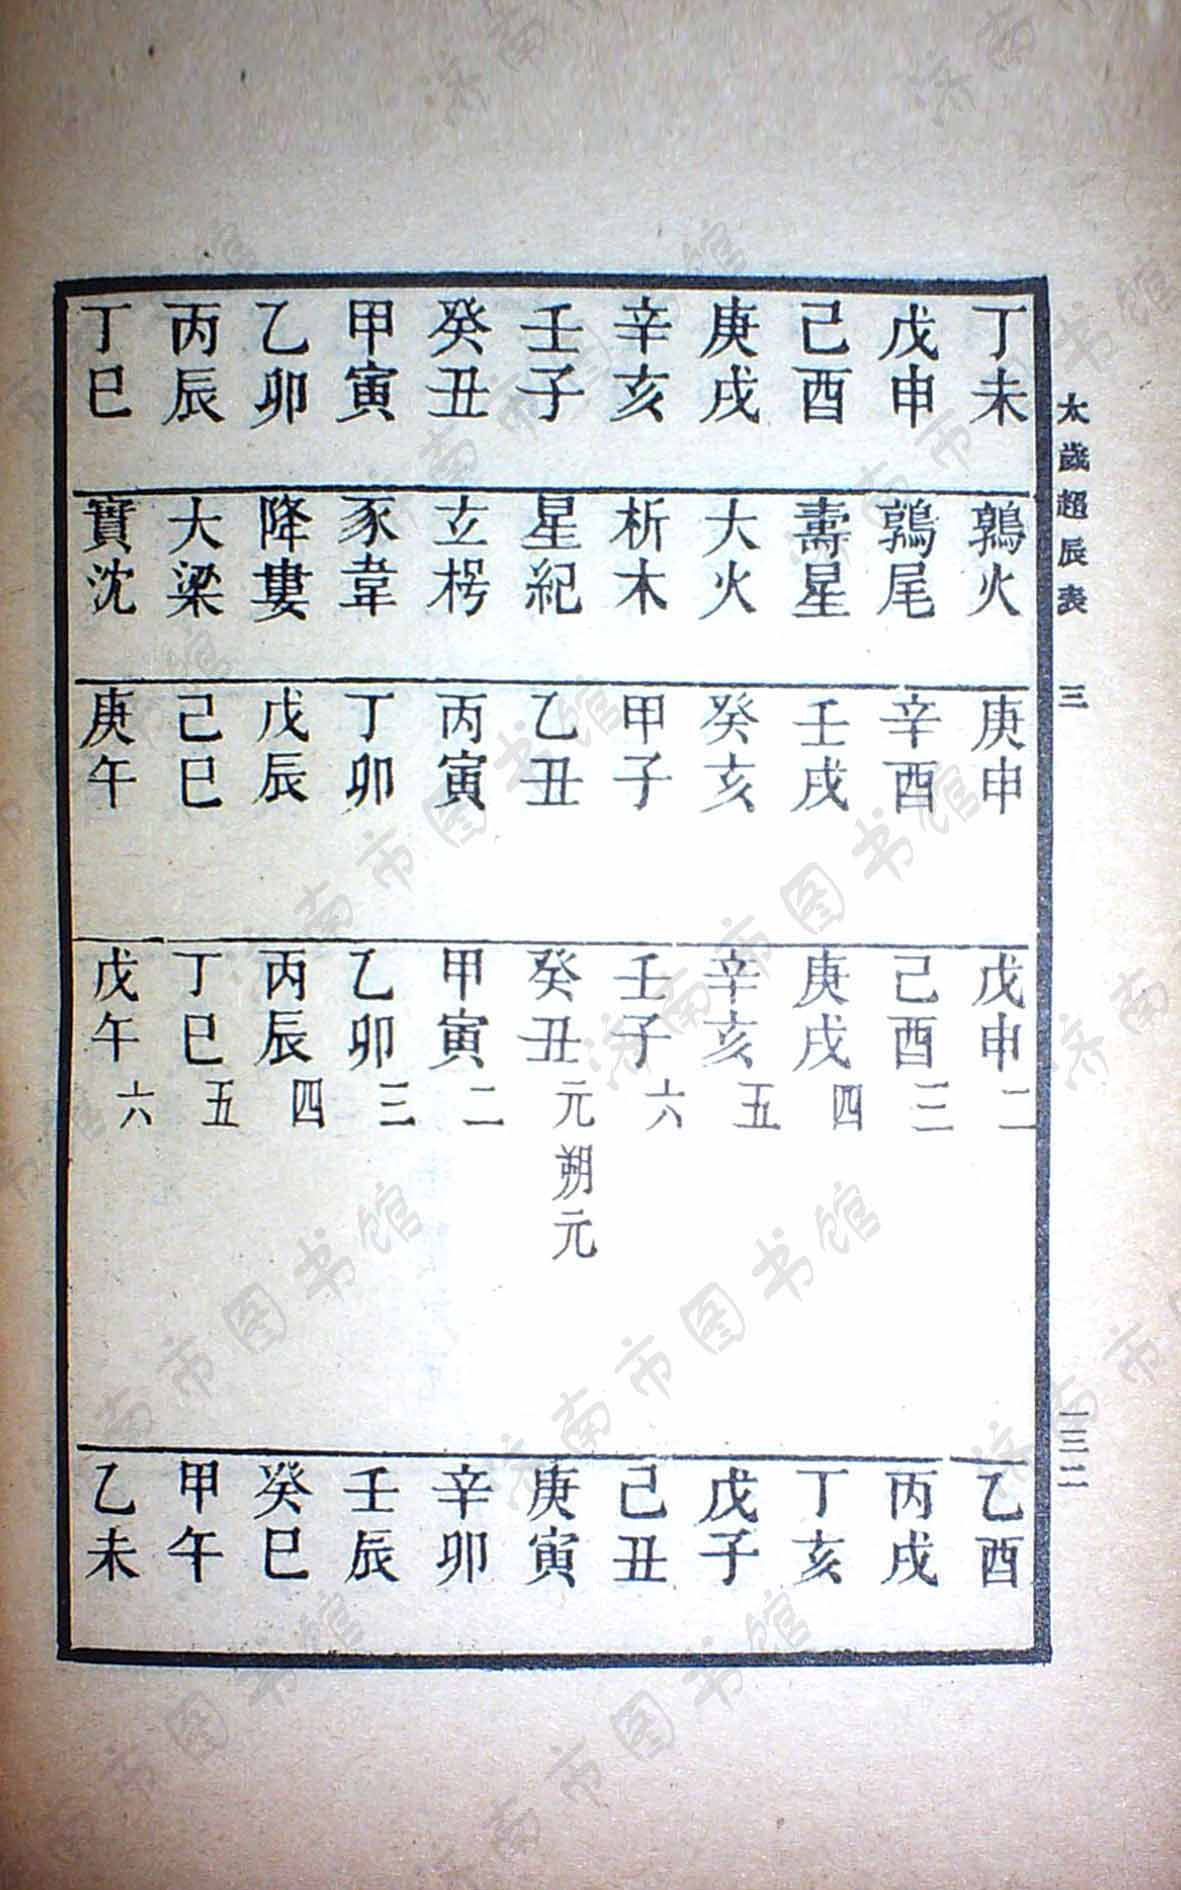 太歲超辰表 三 一三二
丁未 鶉火 庚申 戊申二 乙酉
戊申 鶉尾 辛酉 己酉三 丙戌
己酉 壽星 壬戌 庚戌四 丁亥
庚戌 大火 癸亥 辛亥五 戊子
辛亥 析木 甲子 壬子六 己丑
壬子 星紀 乙丑 癸丑元朔元 庚寅
癸丑 立枵 丙寅 甲寅二 辛卯
甲寅 豕韋 丁卯 乙卯三 壬辰
乙卯 降婁 戊辰 丙辰四 癸巳
丙辰 大梁 己巳 丁巳五 甲午
丁巳 實沈 庚午 戊午六 乙未
济南市图书馆